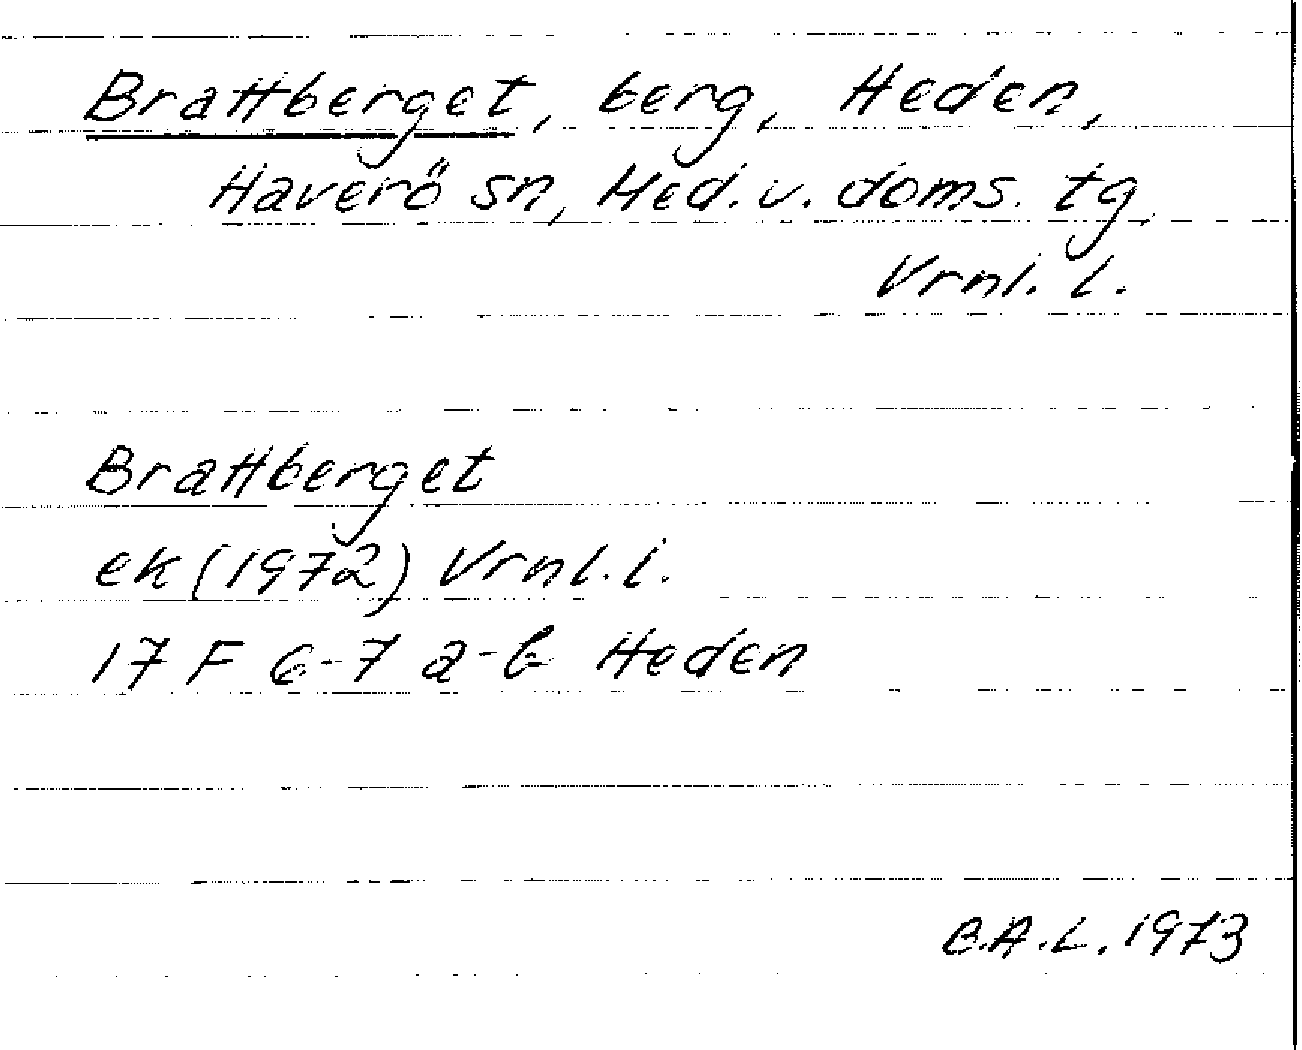 Brattberget, berg, Heden,
Haverö sn, Med. v. doms. tg,
Vrnl. l.
Brattberget
ek (1972) Vrnl. l.
17 F 6-7 a-b Heden
B.A.L. 1973